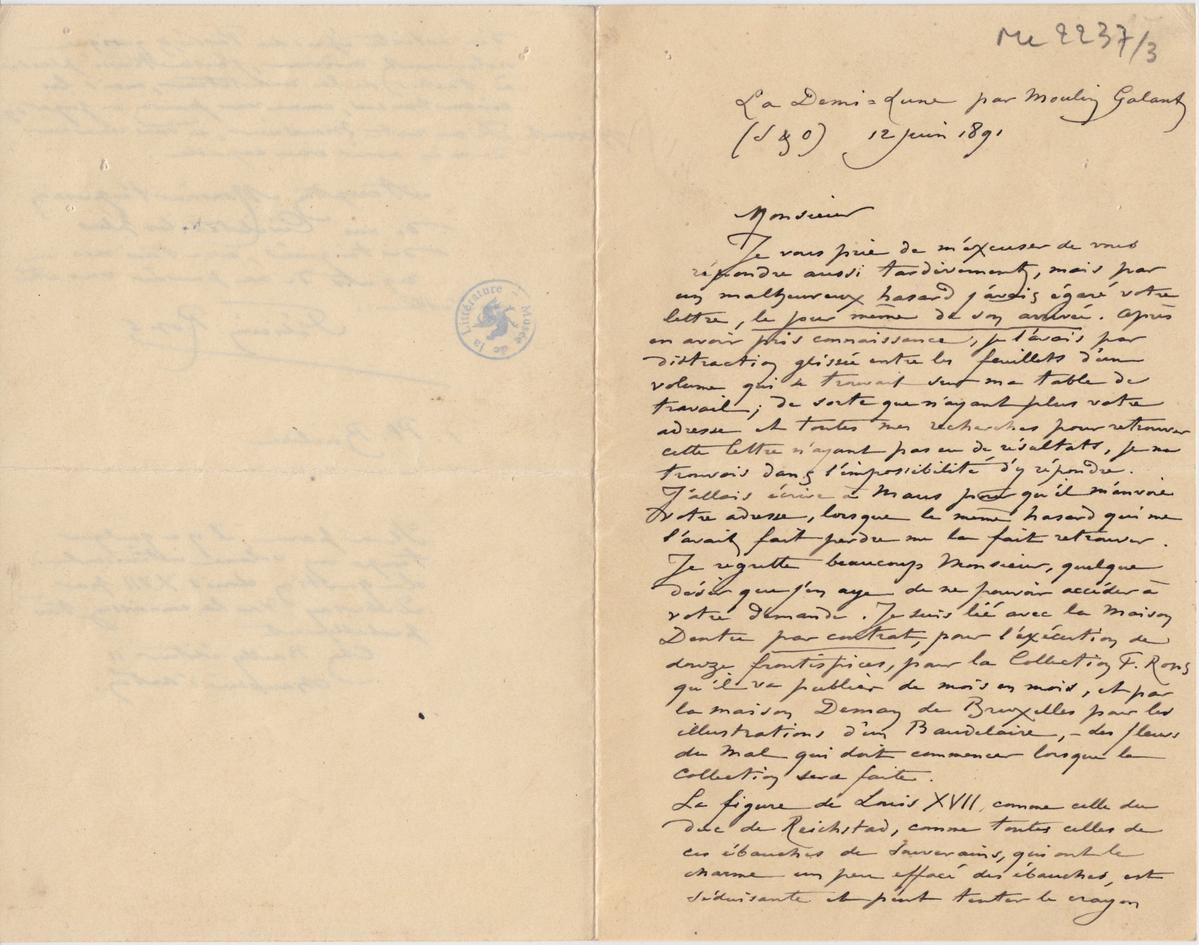 ML 2237/3
La Demi=Lune par Moulin Galant
(S & O) 12 juin 1891
Monsieur
Je vous prie de m'excuser de vous
répondre aussi tardivement, mais par
un malheureux hasard j'avais égaré votre
lettre, le jour même de son arrivée. Après
en avoir pris connaissance, je l'avais par
distraction glissée entre les feuillets d'un
volume qui se trouvait sur ma table de
travail; de sorte que n'ayant plus votre
adresse et toutes mes recherches pour retrouver
cette lettre n'ayant pas eu de résultats, je me
trouvais dans l'impossibilité d'y répondre.
J'allais écrire à Maus pour qu'il m'envoie
votre adresse, lorsque le même hasard qui me
l'avait fait perdre me la fait retrouver.
Je regrette beaucoup Monsieur, quelque
désir que j'en aye de ne pouvoir accéder à
votre demande. Je suis lié avec la Maison
Dentu par contrat, pour l'éxécution de
douze frontispices, pour la Collection F. Rops
qu'il va publier de mois en mois, et par
la maison Deman de Bruxelles pour les
illustrations d'un Baudelaire, – des fleurs
du Mal qui doit commencer lorsque la
Collection sera faite.
La figure de Louis XVII, comme celle du
duc de Reichstad, comme toutes celles de
ces ébauches de Souverains, qui ont le
charme un peu effacé des ébauches, est
séduisante et peut tenter le crayon
Musée de la Littérature
Félicien Rops